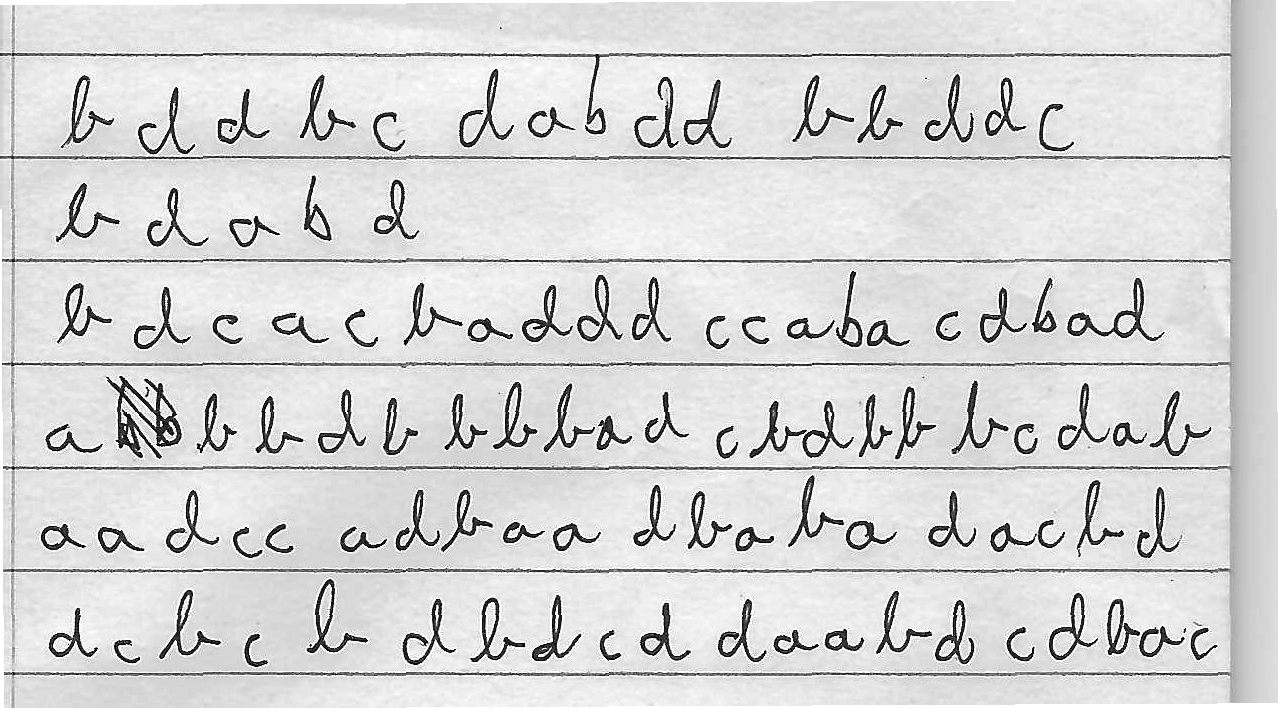 b d d b c d a b d d b b d d c
b d a b d
b d c a c b a d d d c c a b a c d b a d
a b b d b b b b a d c b d b b b c d a b
a a d c c a d b a a d b a b a d a c b d
d c b c b d b d c d d a a b d c d b a c